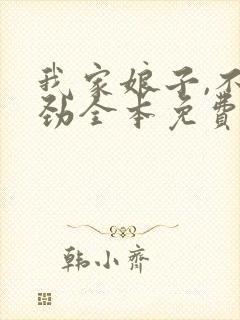 我家娘子,不
劲全本免费
韩小齐